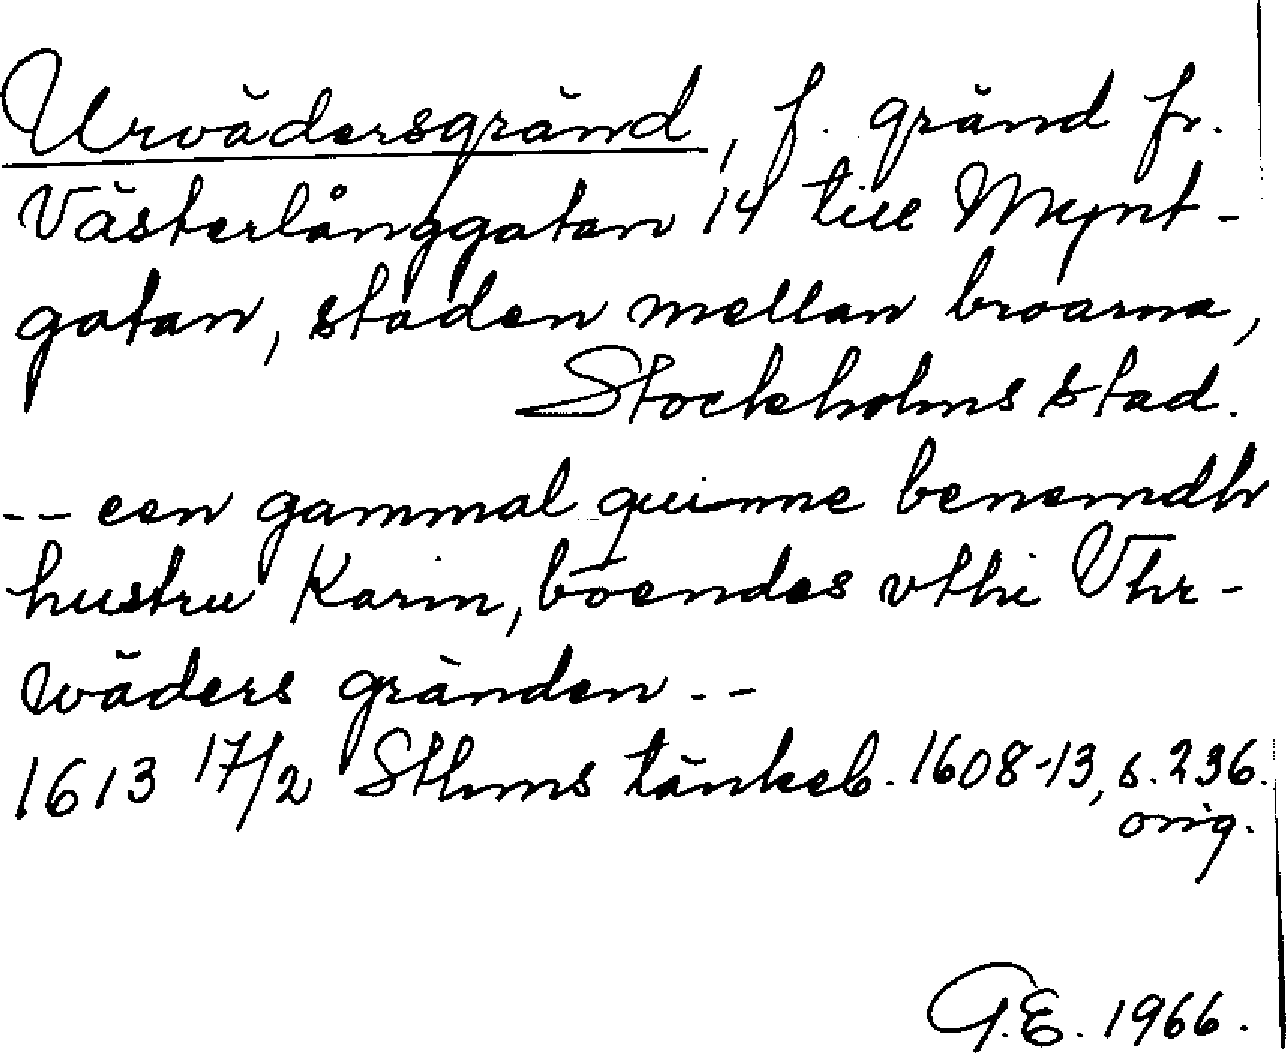 Urvädersgränd, f. gränd fr.
Västerlånggatan 14 till Mynt-
gatan, staden mellan broarna,
Stockholms stad.
-- een gammal quinne benemdh
hustru Karin, boendes vthi Vhr-
wäders gränden --
1613 17/2 Sthms tänkeb. 1608-13, s. 236.
orig.
G.E. 1966.